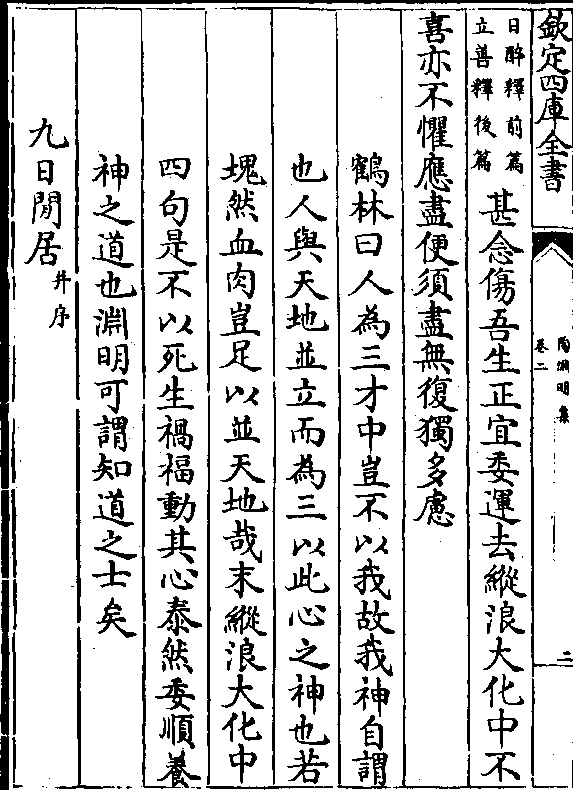 欽定四庫全書
陶淵明集
卷二
二
日醉釋前篇
立善釋後篇
甚念傷吾生正宜委運去縱浪大化中不
喜亦不懼應盡便須盡無復獨多慮
鶴林曰人為三才中豈不以我故我神自謂
也人與天地並立而為三以此心之神也若
塊然血肉豈足以並天地哉末縱浪大化中
四句是不以死生禍福動其心泰然委順養
神之道也淵明可謂知道之士矣
九日閒居并序